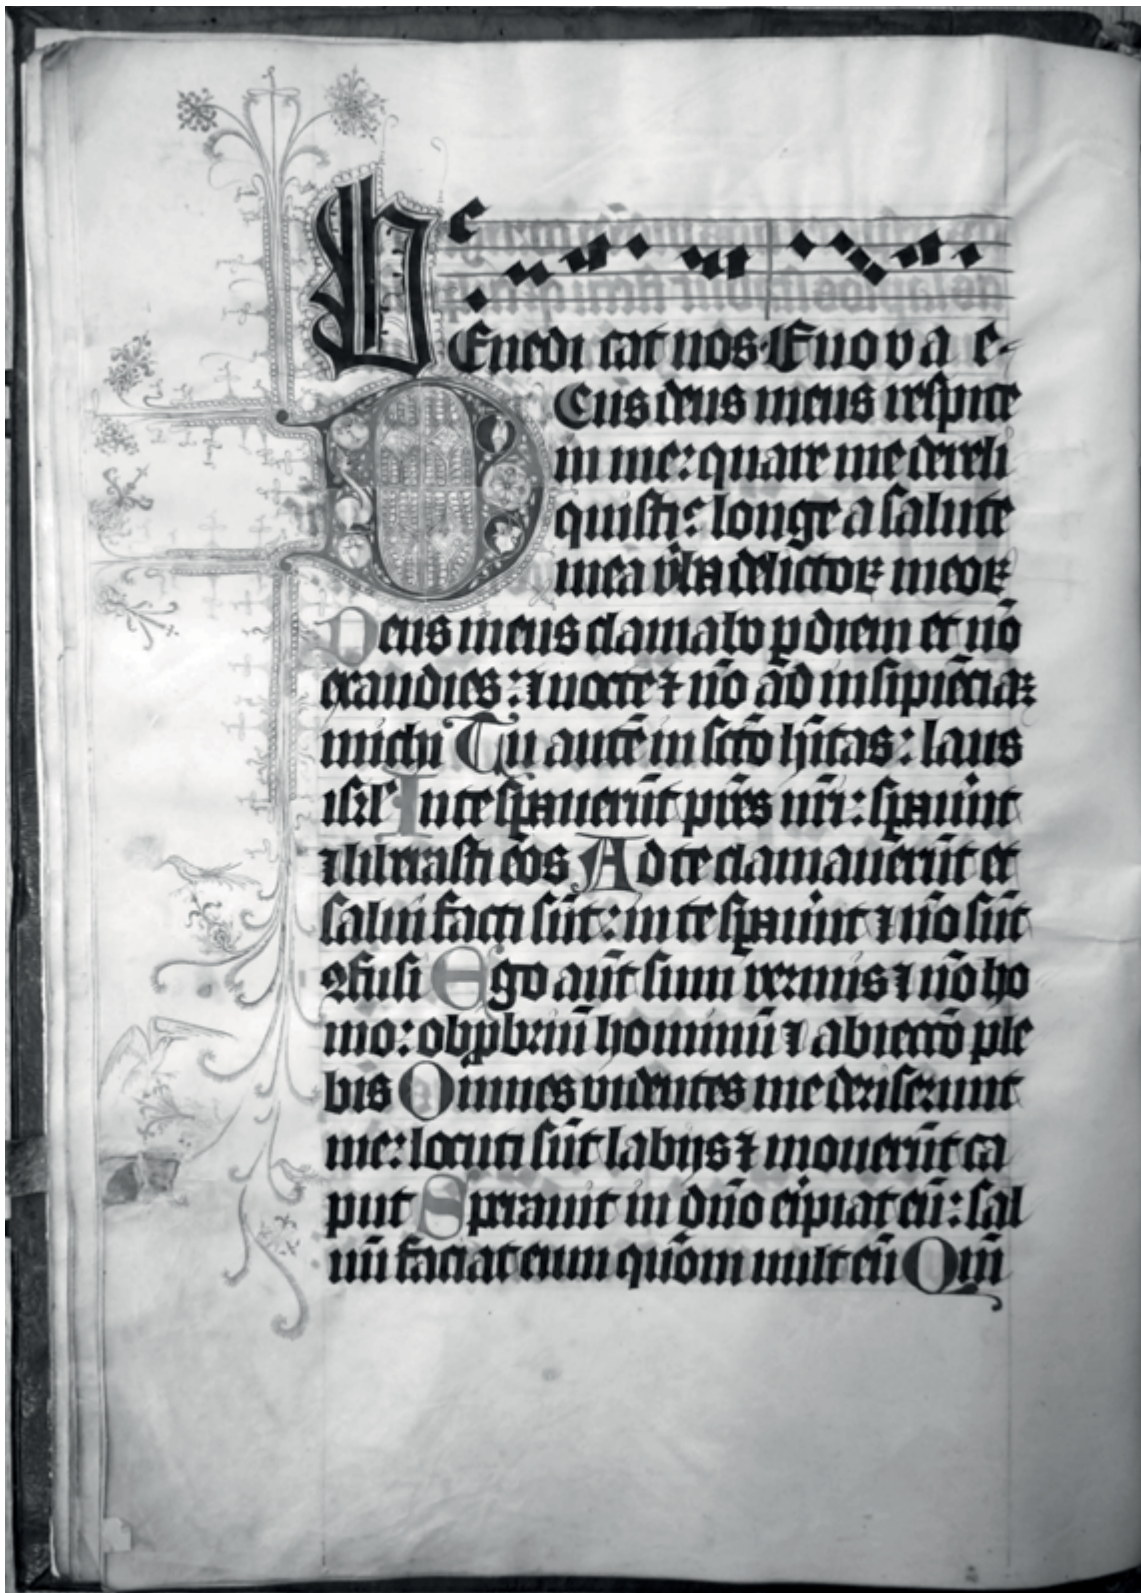 BEnedi cat nos· Euouae·
DEus deus meus respice
in me: quare me dereli
quisti: longe a salute
mea v̄ba delictoꝝ meoꝝ
Deus meus clamabo p diem et nō
exaudies: ⁊ nocte ⁊ nō ad insipiētiaꝫ
michi Tu autē in scō hītas: laus
isrl' In te spauerūt pr̄es nr̄i: spauūt
⁊ liberasti eos Ad te clamauerūt et
salui facti sūt: in te spauūt ⁊ nō sūt
ꝯfusi Ego aūt sum vermis ⁊ nō ho
mo: obpbriū hominū ⁊ abiectō ple
bis Omnes videntes me deriserunt
me: locuti sūt labijs ⁊ mouerūt ca
put Sperauit in dn̄o eripiat eū: sal
uū faciat eum qūom vult eū Qm̄